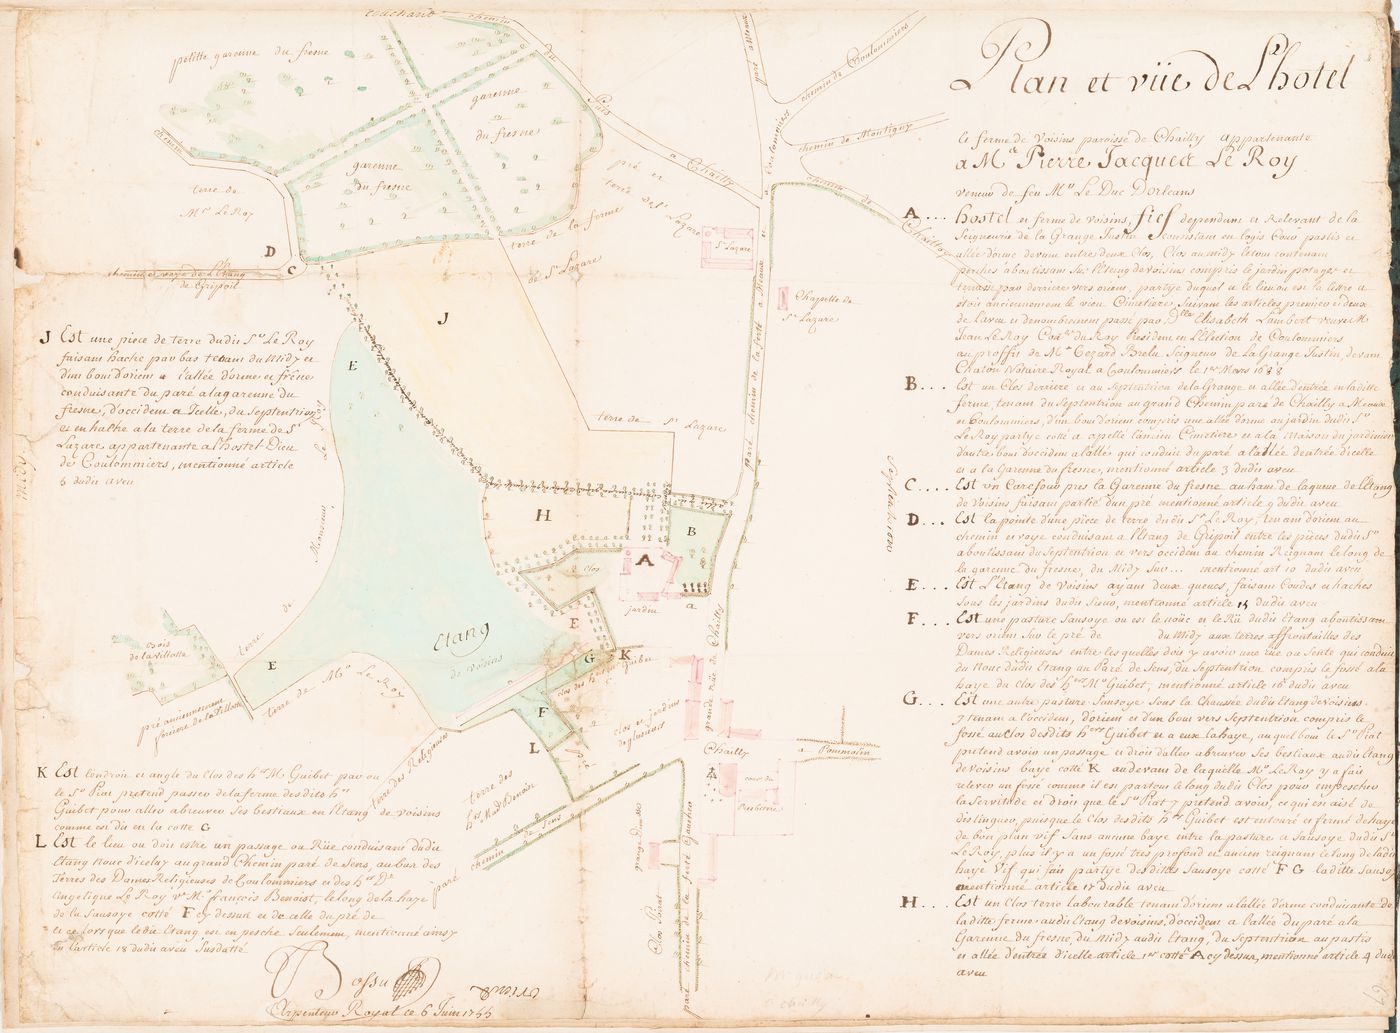 Plan et vüe de L'hotel
et ferme de Voisins paroisse de Chailly appartenante
a Mr. Pierre Jacques Le Roy
veneur de feu Mr. Le Duc Dorleans
A... hostel et ferme de voisins, fief dependant et Relevant de la
Seigneurie de la Grange Justin consistant en logis Cour pastis et
allée dorme devant entre deux Clos, Clos au midy le tout contenant
perches aboutissant sur l'Etang de voisins compris le jardin potager et
terrasse par derriere vers orient, partye duquel a le lieu ou est la lettre a
etoit anciennement le vieu Cimetiere, suivant les articles premier et deux
de l'aveu et denombrement passé par Dlle Elisabeth Lambert veuve M
Jean Le Roy Coner du Roy President en L'Election de Coulommiers
au proffit de Mr Gezard Brelu Seigneur de La Grange Justin, devant
Chaton Notaire Royal a Coulommiers le 1er Mars 1688
B.... Est un Clos derriere et au Septentrion de la Grange et allée d'entrée en ladite
ferme, tenant du Septentrion au grand Chemin paré de Chailly a Meaux
et Coulommiers, d'un bout d'orient compris une allée d'orme au jardin dudit Sr
Le Roy partye cotté a apellé lancien Cimetiere et a la Maison du jardinier
d'autre bout d'occident a lallée qui conduit du paré a lallée dentrée dicelle
et a la Garenne du fresne, mentionné article 3 dudit aveu
C.... Est un Carefour pres la Garenne du fresne au haut de la queue de l'Etang
de Voisins faisant partie d'un pré mentionné article 9 dudit aveu
D... Est la pointe d'une piece de terre dudit Sr Le Roy, tenant d'orient au
chemin et voye conduisant a l'Etang de Gripoil entre les pieces dudit Sr
aboutissant du Septentrion et vers occident au chemin Reignant le long de
la garenne du fresne, du Midy sur... mentionné art 10 dudit aveu
E... Est L'Etang de voisins ayant deux queues, faisant Coudes et haches
sous les jardins dudit Sieur, mentionné article 15 dudit aveu
F... Est une pasture Sausoye ou est le noüe et le Rû dudit Etang aboutissant
vers orient sur le pré de du Midy aux terres affrontailles des
Dames Religieuses entre lesquelles doit y avoir une rüe ou Sente qui conduit
du Nouc dudit Etang au Paré de Sens, du Septentrion compris le fossé a la
haye du Clos des hers Mr Guibet, mentionné article 16 dudit aveu
G.... Est une autre pasture Sausoye sous la Chaussée dudit Etang de voisins
y tenant a l'occident, d'orient et d'un bout vers Septentrion compris le
fossé au Clos desdits hers Guibet et a eux la haye, auquel bout le Sr Piat
pretend avoir un passage et droit d'aller abreuver ses bestiaux audit Etang
de voisins haye cotté K au devant de laquelle Mr Le Roy y a fait
relever un fossé comme il est partout le long dudit Clos pour empescher
la Servitude et droit que le Sr Piat y pretend avoir, ce qui est aisé de
distinguer, puisque le Clos desdits hers Guibet est entouré et fermé de haye
de bon plan vif Sans aucune baye entre la pasture et Sausoye dudit Sr
Le Roy, plus il y a un fossé tres profond et ancien reignant le long de ladite
haye vif qui fait partye desdittes Sausoye cotté F G ladite Sausoye
mentionné article 17 dudit aveu
H.... Est un Clos terre labourable tenant d'orient a l'allée d'orme conduisante de
laditte ferme audit Etang de voisins, d'occident a l'allée du paré a la
Garenne du fresne, du Midy audit Etang, du Septentrion au pastis
et allée d'entrée d'icelle article 1er cotté A cy dessus, mentionné article 4 dudit
aveu
J Est une piece de terre dudit Sr. Le Roy
faisant hache par bas tenant du Midy et
d'un bout d'orient a l'allée d'orme et frêne
conduisante du paré a la garenne du
fresne, d'occident a Icelle, du Septentrion
et en halhe a la terre de la ferme de St
Lazare appartenante a l'hostel Dieu
de Coulommiers, mentionné article
5 dudit aveu
K Est l'endroit et angle du Clos des hers Mr Guibet par ou
le Sr Piat pretend passer de la ferme desdits hers
Guibet pour aller abreuver ses bestiaux en l'Etang de voisins
comme est dit en la cotte G
L Est le lieu ou doit estre un passage ou Rüe conduisant dudit
Etang nouc d'iceluy au grand Chemin paré de Sens, au bas des
Terres des Dames Religieuses de Coulommiers et des hers De
Angelique Le Roy ve Mr françois Benoist, le long de la haye
de la Sausoye cotté F cy dessus et de celle du pré de
et ce lors que ledit Etang est en pesche Seulement, mentionné ainsy
En l'article 18 dudit aveu Susdatté
Bossu
Arpenteur Royal ce 6 Juin 1755
couchant
chemin
petitte garenne du fresne
garenne
du fresne
garenne
du fresne
chemin
terre de
Mr Le Roy
D
C
chemin et voye de L'Etang
de Gripoil
J
terre de la ferme
de St Lazare
pré et
terre
de St Lazare
de Chailly
a
paré a Meaux
chemin de Coulommiers
chemin de Montigny
chemin de Chailloy
a Coulommiers
St Lazare
Chapelle de
St Lazare
paré chemin de la ferté a Meaux
terre de St Lazare
Septentrion
midy
E
H
B
A
Clos
jardin
a
E
Etang
de voisins
E
G
K
clos des hers Guibet
F
L
clos et jardins
terre de Monsieur
bois
de la villotte
pré anciennement
terre de Mr. Le Roy
terre des Religieuses
terre des
hers Mad Benoist
paré chemin de Sens
grande rüe de Chailly
Chailly
a Pommolin
cour du
Presbitere
Clos Poirat
paré chemin de la ferté Gaucher